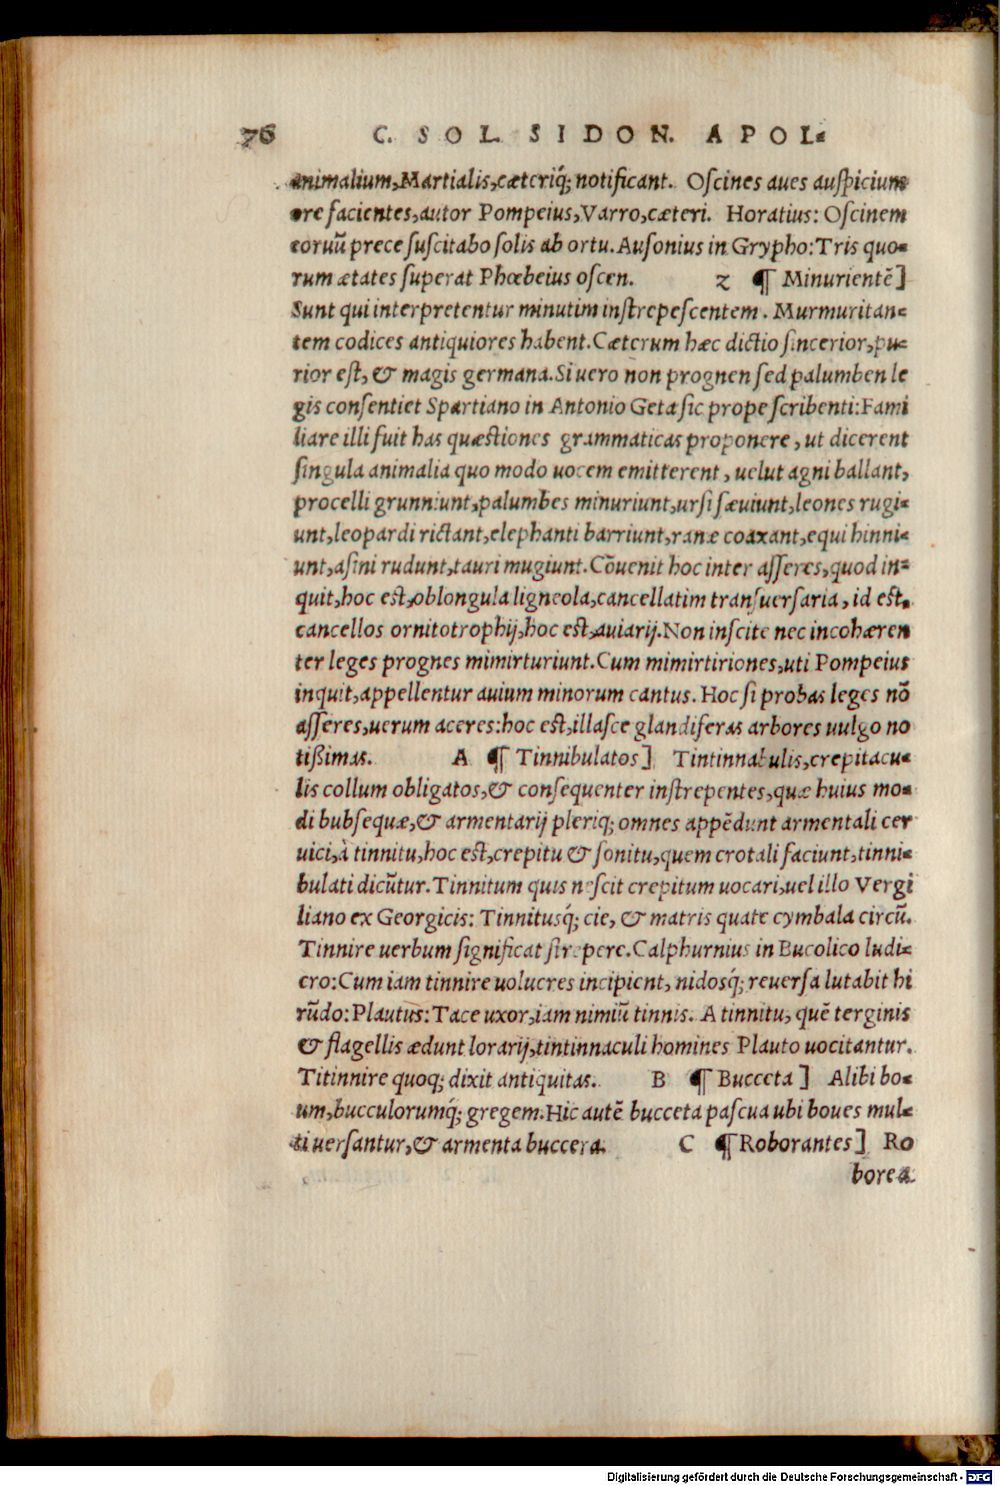 76 C. SOL. SIDON. APOL⸗
animalium,Martialis,cæteriq́; notificant. Oſcines aues auſpicium
ore facientes,autor Pompeius,Varro,cæteri. Horatius: Oſcinem
coruũ prece ſuſcitabo ſolis ab ortu. Auſonius in Grypho:Tris quo⸗
rum ætates ſuperat Phœbeius oſcen. Z ¶ Minurientẽ]
Sunt qui interpretentur minutim inſtrepeſcentem. Murmuritan⸗
tem codices antiquiores habent.Cæterum hæc dictio ſincerior,pu⸗
rior eſt, & magis germana.Si uero non prognen ſed palumben le
gis conſentiet Spartiano in Antonio Geta ſic prope ſcribenti:Fami
liare illi fuit has quæſtiones grammaticas proponere, ut dicerent
ſingula animalia quo modo uocem emitterent, uelut agni ballant,
procelli grunniunt,palumbes minuriunt,urſi ſæuiunt,leones rugi⸗
unt,leopardi rictant,elephanti barriunt,ranæ coaxant,equi hinni⸗
unt,aſini rudunt,tauri mugiunt.Cõuenit hoc inter aſſeres,quod in⸗
quit,hoc eſt,oblongula ligneola,cancellatim tranſuerſaria, id eſt,
cancellos ornitotrophij,hoc eſt,auiarij.Non inſcite nec incohæren
ter leges prognes mimirturiunt.Cum mimirtiriones,uti Pompeius
inquit,appellentur auium minorum cantus. Hoc ſi probas leges nõ
aſſeres,uerum aceres:hoc eſt,illaſce glandiferas arbores uulgo no
tißimas. A ¶ Tinnibulatos] Tintinnabulis,crepitacu⸗
lis collum obligatos,& conſequenter inſtrepentes,quæ huius mo⸗
di bubſequæ,& armentarij pleriq; omnes appẽdunt armentali cer
uici,à tinnitu,hoc eſt,crepitu & ſonitu,quem crotali faciunt,tinni⸗
bulati dicũtur.Tinnitum quis neſcit crepitum uocari,uel illo Vergi
liano ex Georgicis: Tinnitusq́; cie, & matris quate cymbala circũ.
Tinnire uerbum ſignificat ſtrepere.Calphurnius in Bucolico ludi⸗
cro:Cum iam tinnire uolucres incipient, nidosq́; reuerſa lutabit hi
rũdo:Plautus:Tace uxor,iam nimiũ tinnis. A tinnitu, quẽ terginis
& flagellis ædunt lorarij,tintinnaculi homines Plauto uocitantur.
Titinnire quoq; dixit antiquitas. B ¶ Bucceta] Alibi bo⸗
um,bucculorumq́; gregem.Hic autẽ bucceta paſcua ubi boues mul⸗
ti uerſantur,& armenta buccera. C ¶ Roborantes] Ro
borea
Digitalisierung gefördert durch die Deutsche Forschungsgemeinschaft - DFG